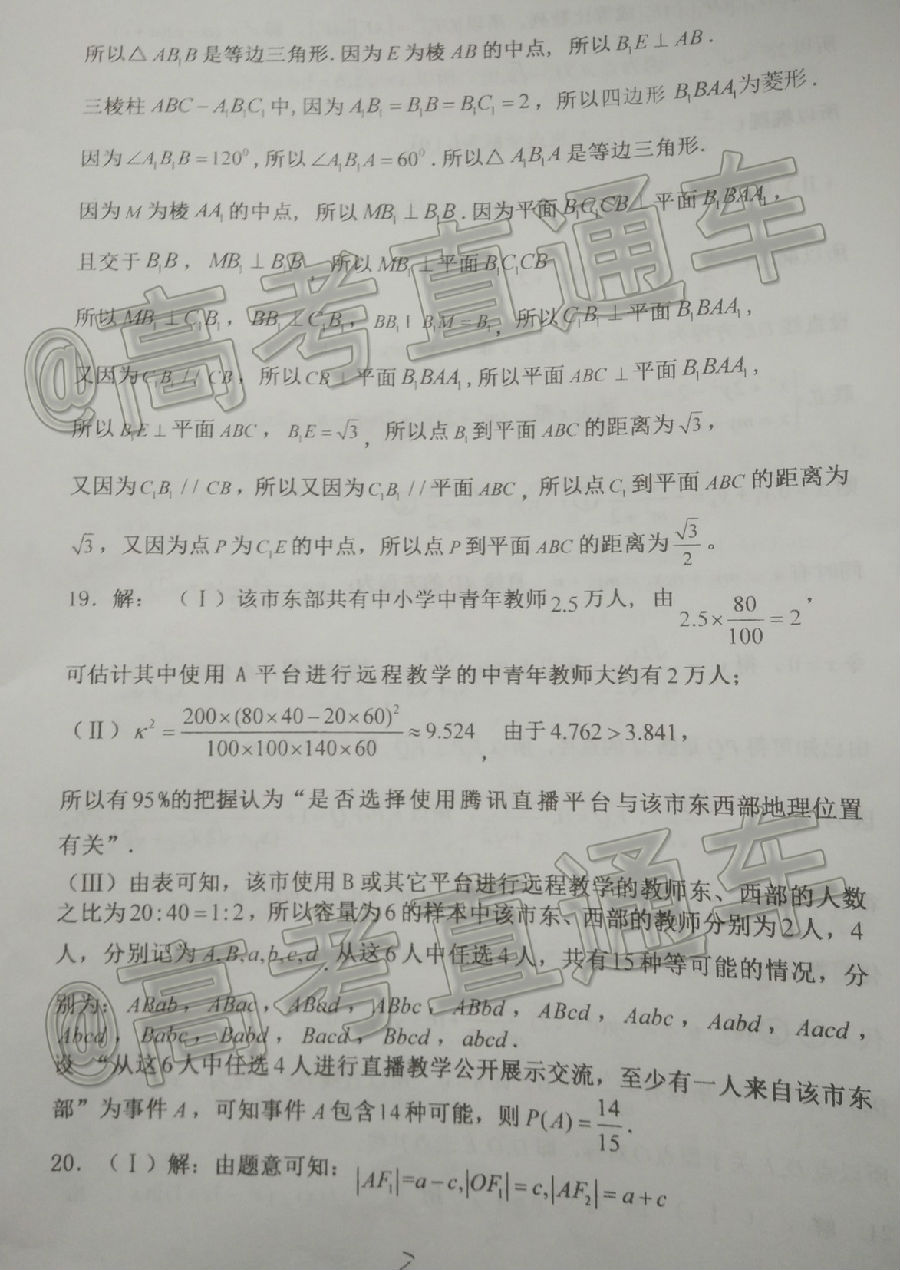 所以△ AB₁B 是等边三角形.因为 E 为棱 AB 的中点, 所以 B₁E ⊥ AB .
三棱柱 ABC − A₁B₁C₁ 中, 因为 A₁B₁ = B₁B = B₁C₁ = 2 , 所以四边形 B₁BAA₁ 为菱形 .
因为 ∠A₁B₁B = 120⁰ ,所以 ∠A₁B₁A = 60⁰ .所以△ A₁B₁A 是等边三角形.
因为 M 为棱 AA₁ 的中点, 所以 MB₁ ⊥ B₁B .因为平面 B₁C₁CB ⊥ 平面 B₁BAA₁ ,
且交于 B₁B , MB₁ ⊥ B₁B , 所以 MB₁ ⊥ 平面 B₁C₁CB
所以 MB₁ ⊥ C₁B₁ , BB₁ ⊥ C₁B₁ , BB₁ I B₁M = B₁ , 所以 C₁B₁ ⊥ 平面 B₁BAA₁ ,
又因为 C₁B₁ // CB , 所以 CB ⊥ 平面 B₁BAA₁ , 所以平面 ABC ⊥ 平面 B₁BAA₁ ,
所以 B₁E ⊥ 平面 ABC , B₁E = √3 , 所以点 B₁ 到平面 ABC 的距离为 √3 ,
又因为 C₁B₁ // CB , 所以又因为 C₁B₁ // 平面 ABC , 所以点 C₁ 到平面 ABC 的距离为
√3 , 又因为点 P 为 C₁E 的中点, 所以点 P 到平面 ABC 的距离为 √3/2 。
19. 解: (Ⅰ) 该市东部共有中小学中青年教师 2.5 万人, 由 2.5×80/100 = 2 ,
可估计其中使用 A 平台进行远程教学的中青年教师大约有 2 万人;
(Ⅱ) κ² = 200×(80×40−20×60)²/100×100×140×60 ≈ 9.524 , 由于 4.762 > 3.841 ,
所以有 95%的把握认为“是否选择使用腾讯直播平台与该市东西部地理位置
有关”.
(Ⅲ) 由表可知, 该市使用 B 或其它平台进行远程教学的教师东、西部的人数
之比为 20:40=1:2 , 所以容量为 6 的样本中该市东、西部的教师分别为 2 人, 4
人, 分别记为 A,B,a,b,c,d . 从这 6 人中任选 4 人, 共有 15 种等可能的情况, 分
别为: ABab , ABac , ABad , ABbc , ABbd , ABcd , Aabc , Aabd , Aacd ,
Abcd , Babc , Babd , Bacd , Bbcd , abcd .
设 “从这 6 人中任选 4 人进行直播教学公开展示交流, 至少有一人来自该市东
部”为事件 A , 可知事件 A 包含 14 种可能, 则 P(A) = 14/15 .
20. (Ⅰ) 解: 由题意可知: |AF₁|=a−c,|OF₁|=c,|AF₂|=a+c
@高考直通车
@高考直通车